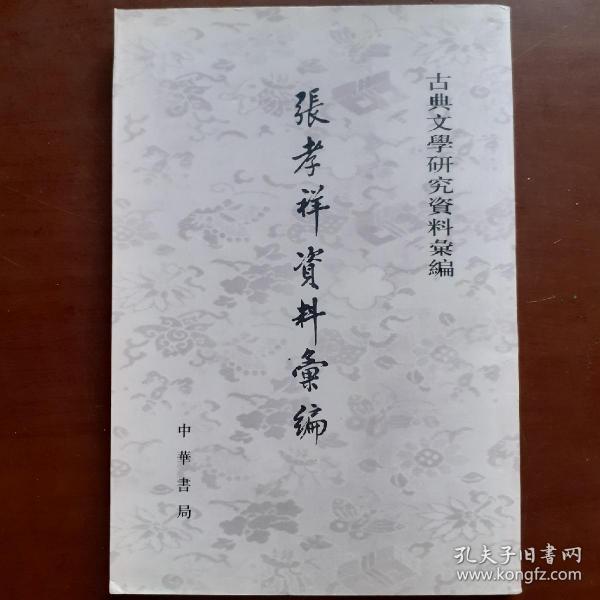 古典文學研究資料彙編
張孝祥資料彙編
中華書局
孔夫子旧书网
www.kongfz.com